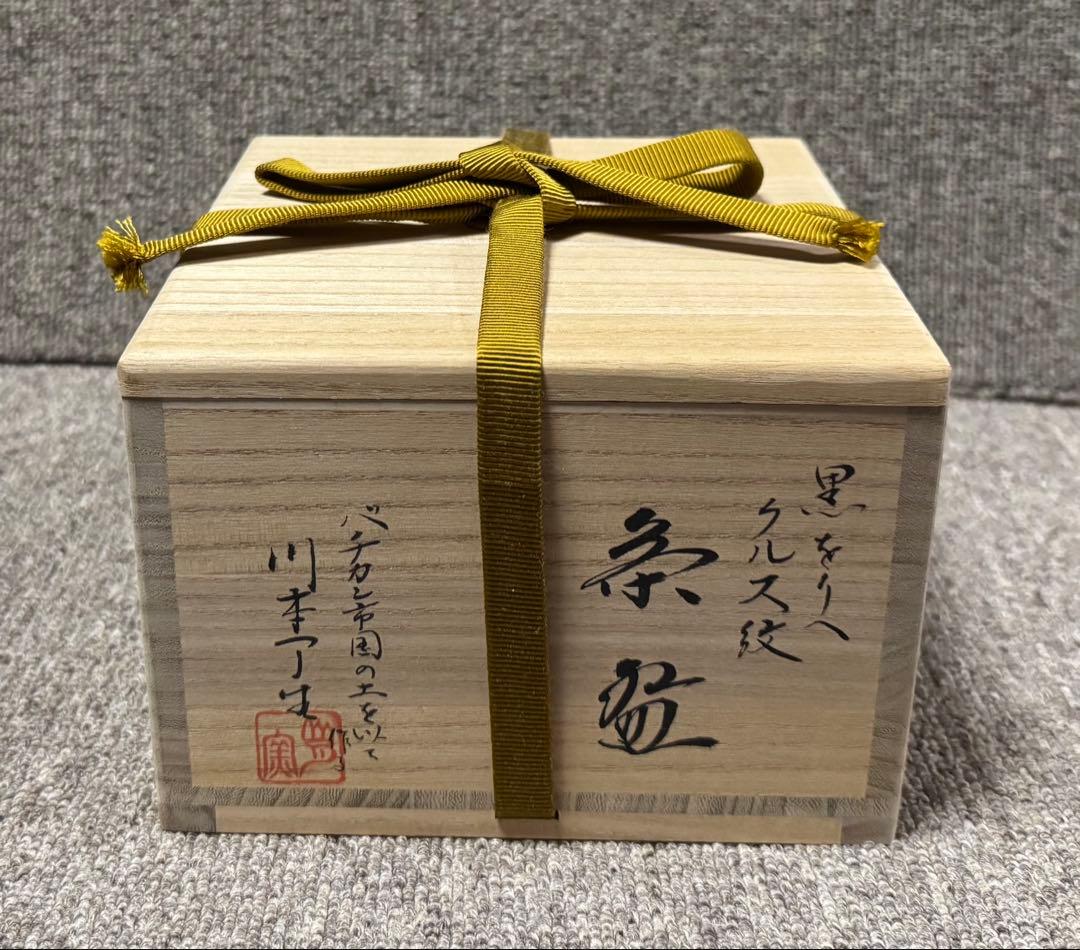 黒をりへ
クルス紋
茶盌
バチカン市国の土を以て
作る
川本